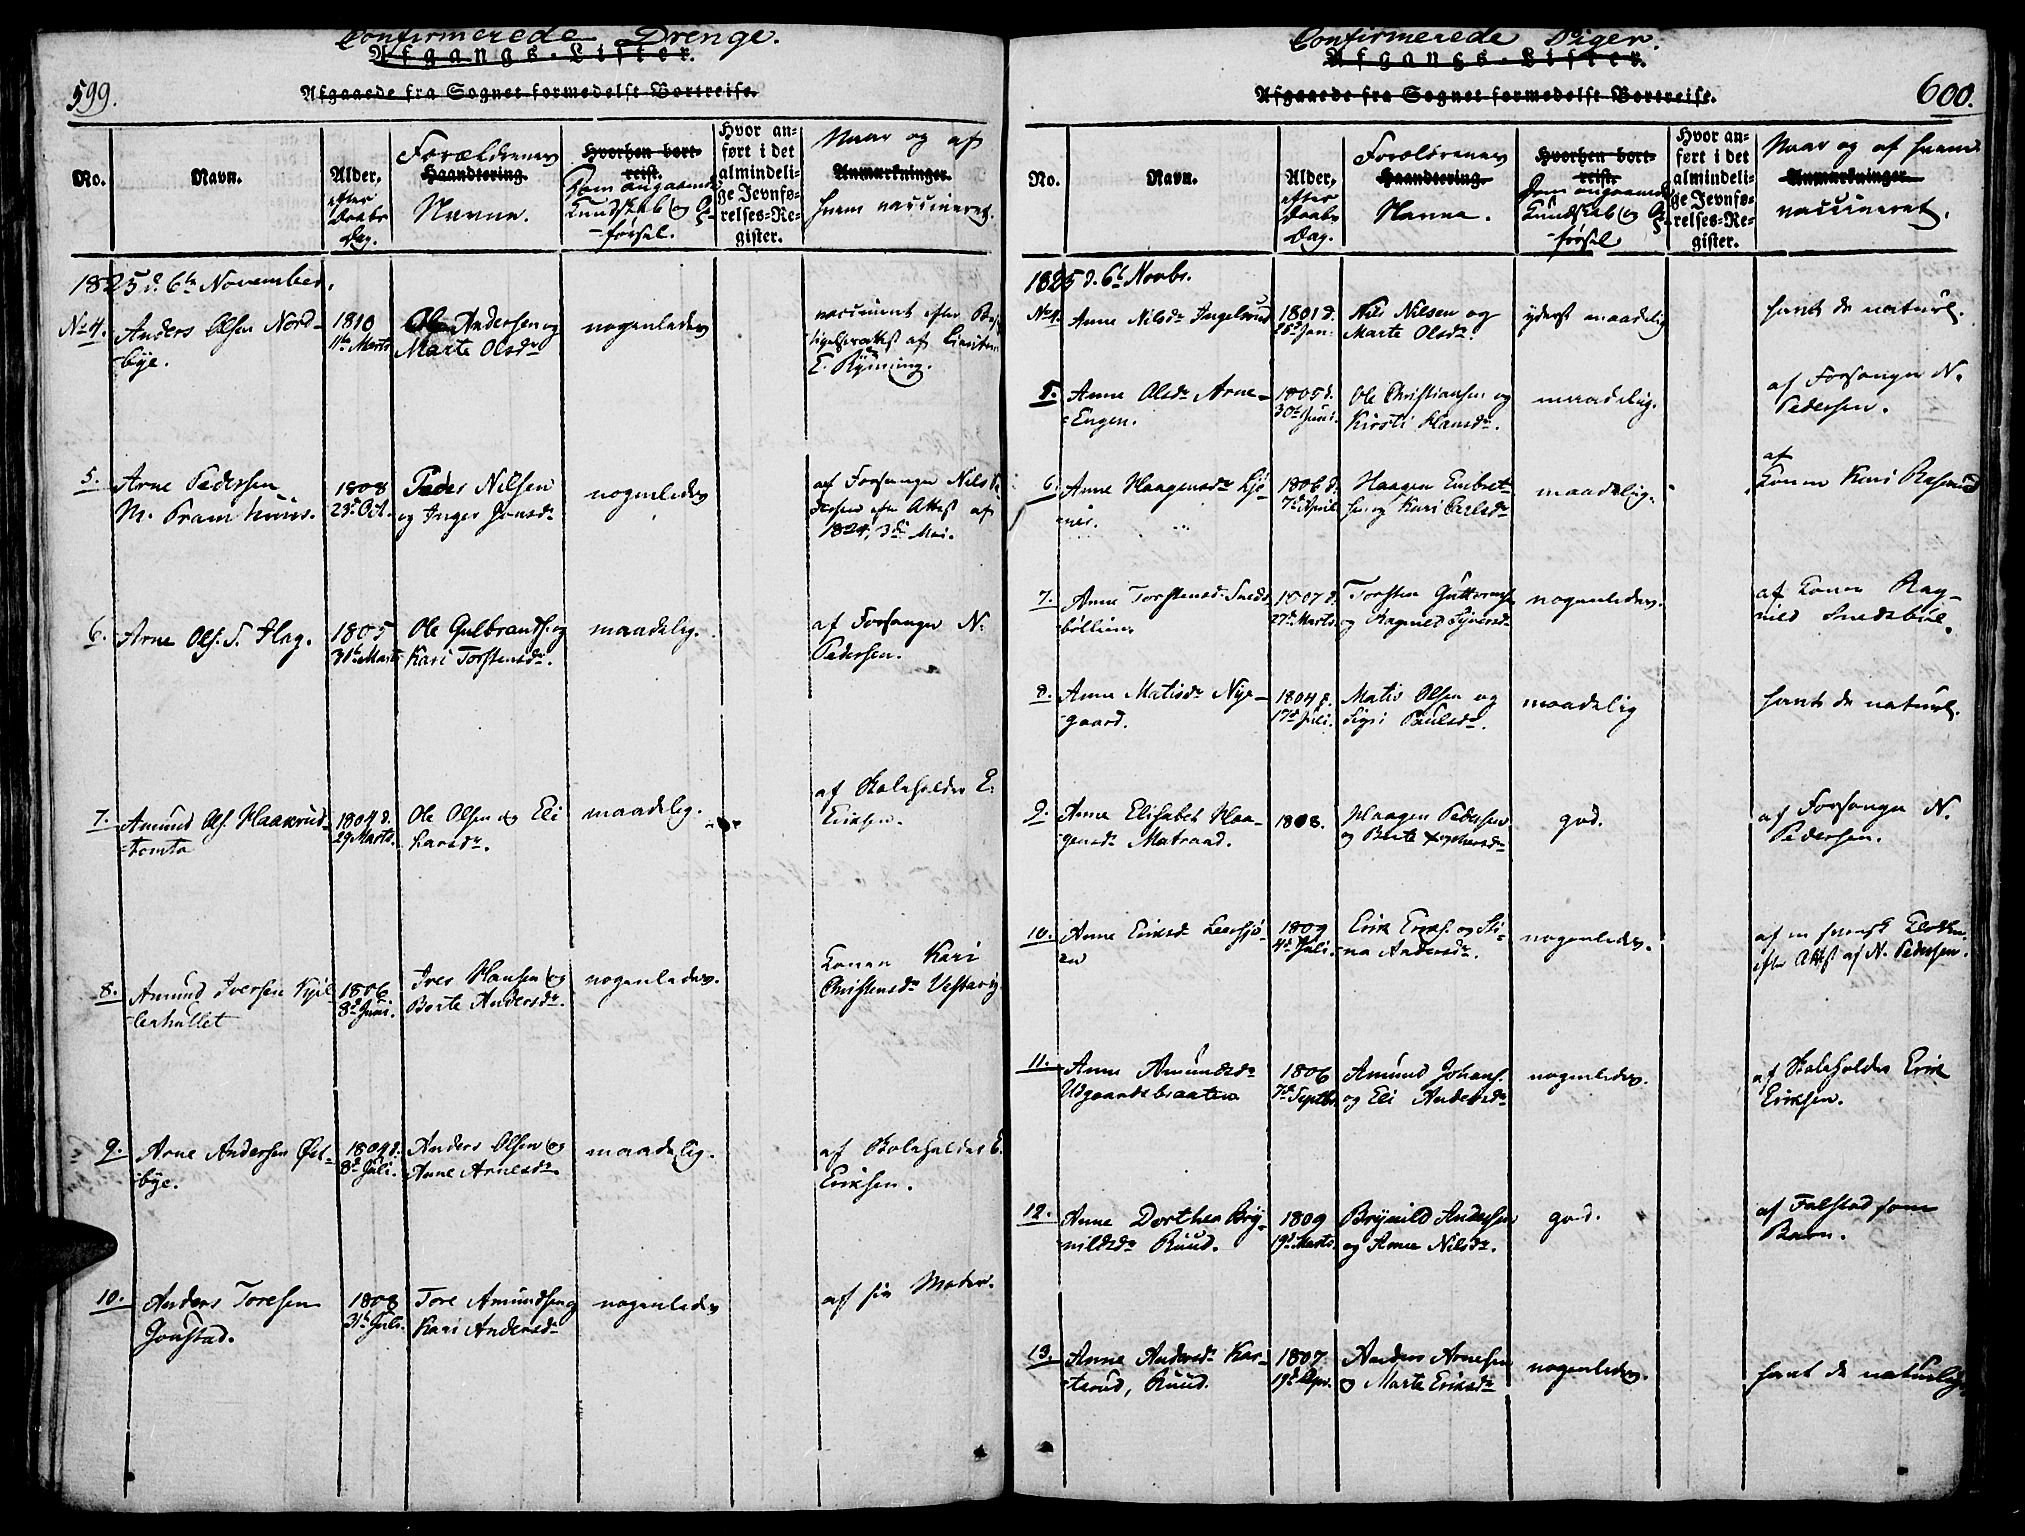 Confirmerede Drenge.
Afgangs-Lister.
599.
Afgaaede fra Sognet formedelst Bortreise.
No.
Navn.
Alder,
efter
Daabs
Dag.
Forældrenes
Haandtering.
Navne.
Hvorhen bort-
reist.
Kundskab og Op-
-førsel.
Hvor an-
ført i det
almindeli-
ge Jevnfø-
relses-Re-
gister.
Naar og af
Anmærkninger.
hvem vaccineret.
1825 d. 6te November.
No 4.
Anders Olsen Nord-
-bye.
1810
11te Marts
Ole Andersen og
Marte Olsdr
nogenledes
vaccineret efter
af
E. Rynning.
5.
Arne Pedersen
M. Pramhuus.
1808
23d Oct.
Peder Nilsen
og Inger Jonsdr
nogenledes
af Forsanger Nils Pe-
dersen efter Attest af
1824, 3die Mai.
6.
Arne Ols. S. Hag.
1805
31te Marts
Ole Gulbrands. og
Kari Torstensdr.
maadelig.
af Forsanger N.
Pedersen.
7.
Amund Ols. Haakerud-
-tomta
1804 d.
29 Marts.
Ole Olsen og Eli
Larsdr.
maadelig.
af Skoleholder E.
Eriksen.
8.
Amund Iversen Kjil-
-lerhullet
1806
8d Juni.
Iver Hansen og
Berte Andersdr.
nogenledes.
Konen Kari
Christensdr Vestby
9.
Arne Andersen Øst-
-bye.
1809 d.
8d Juli.
Anders Olsen og
Anne Arnesdr.
maadelig.
af Skoleholder E.
Eriksen.
10.
Anders Toresen
Jonstad.
1808
31te Juli.
Tore Amundsen og
Kari Andersdr
nogenledes
af sin Moder.
Confirmerede Piger.
Afgangs-Lister.
600.
Afgaaede fra Sognet formedelst Bortreise.
No.
Navn.
Alder,
efter
Daabs
Dag.
Forældrenes
Haandtering.
Navne.
Hvorhen bort-
reist.
Dom angaaende
Kundskab og Op-
-førsel
Hvor an-
ført i det
almindeli-
ge Jevnfø-
relses-Re-
gister.
Naar og af hvem
Anmærkninger.
vaccineret.
1825 d. 6te Novbr.
No 4.
Anne Nilsdr Ingelsrud
1801 d.
26d Jan.
Nils Nilsen og
Marte Olsdr.
yderst maadelig
havt de naturl.
5.
Anne Olsdr Arne-
-Engen.
1805 d.
30te Juni.
Ole Christiansen og
Kirsti Hansdr.
maadelig.
af Forsanger N.
Pedersen.
6.
Anne Haagensdr Ljø-
-ner.
1806 d.
7d April
Haagen Embret-
sen og Kari Carlsdr
maadelig.
af
Konen Kari Rasmusd
7.
Anne Torstensd. Sneds-
bøllien.
1807 d.
27d Marts.
Torsten Guttorms.
og Ragnild Syversdr
nogenledes.
af Konen Rag-
nild Snedsbøl.
8.
Anne Matisdr Nye-
-gaard.
1804 d.
17d Juli.
Matis Olsen og
Sigri Paulsdr.
maadelig
havt de naturl.
9.
Anne Elisabet Haa-
gensdr Matrand.
1808.
Haagen Pedersen
og Berte Xtophersdr
god.
af Forsanger N.
Pedersen.
10.
Anne Eriksdr Leersjø-
en
1809
4d Juli.
Erik Eriks. og Sti-
-na Andersdr.
nogenledes.
af en svensk Klokker
efter Attest af N. Pedersen.
11.
Anne Amundsdr
Udgaardsbraaten
1806
7d Septbr.
Amund Johans.
og Eli Andersdr
nogenledes.
af Skoleholder Erik
Eriksen.
12.
Anne Dorthea Bry-
-nildsdr Ruud.
1809
19d Marts.
Brynild Andersen
og Anne Nilsdr.
god.
af Falstad som
Barn.
13.
Anne Andersdr Kar-
-terud, Ruud.
1807
19d Apr.
Anders Arnesen
og Marte Eriksdr
nogenledes.
havt de naturlige